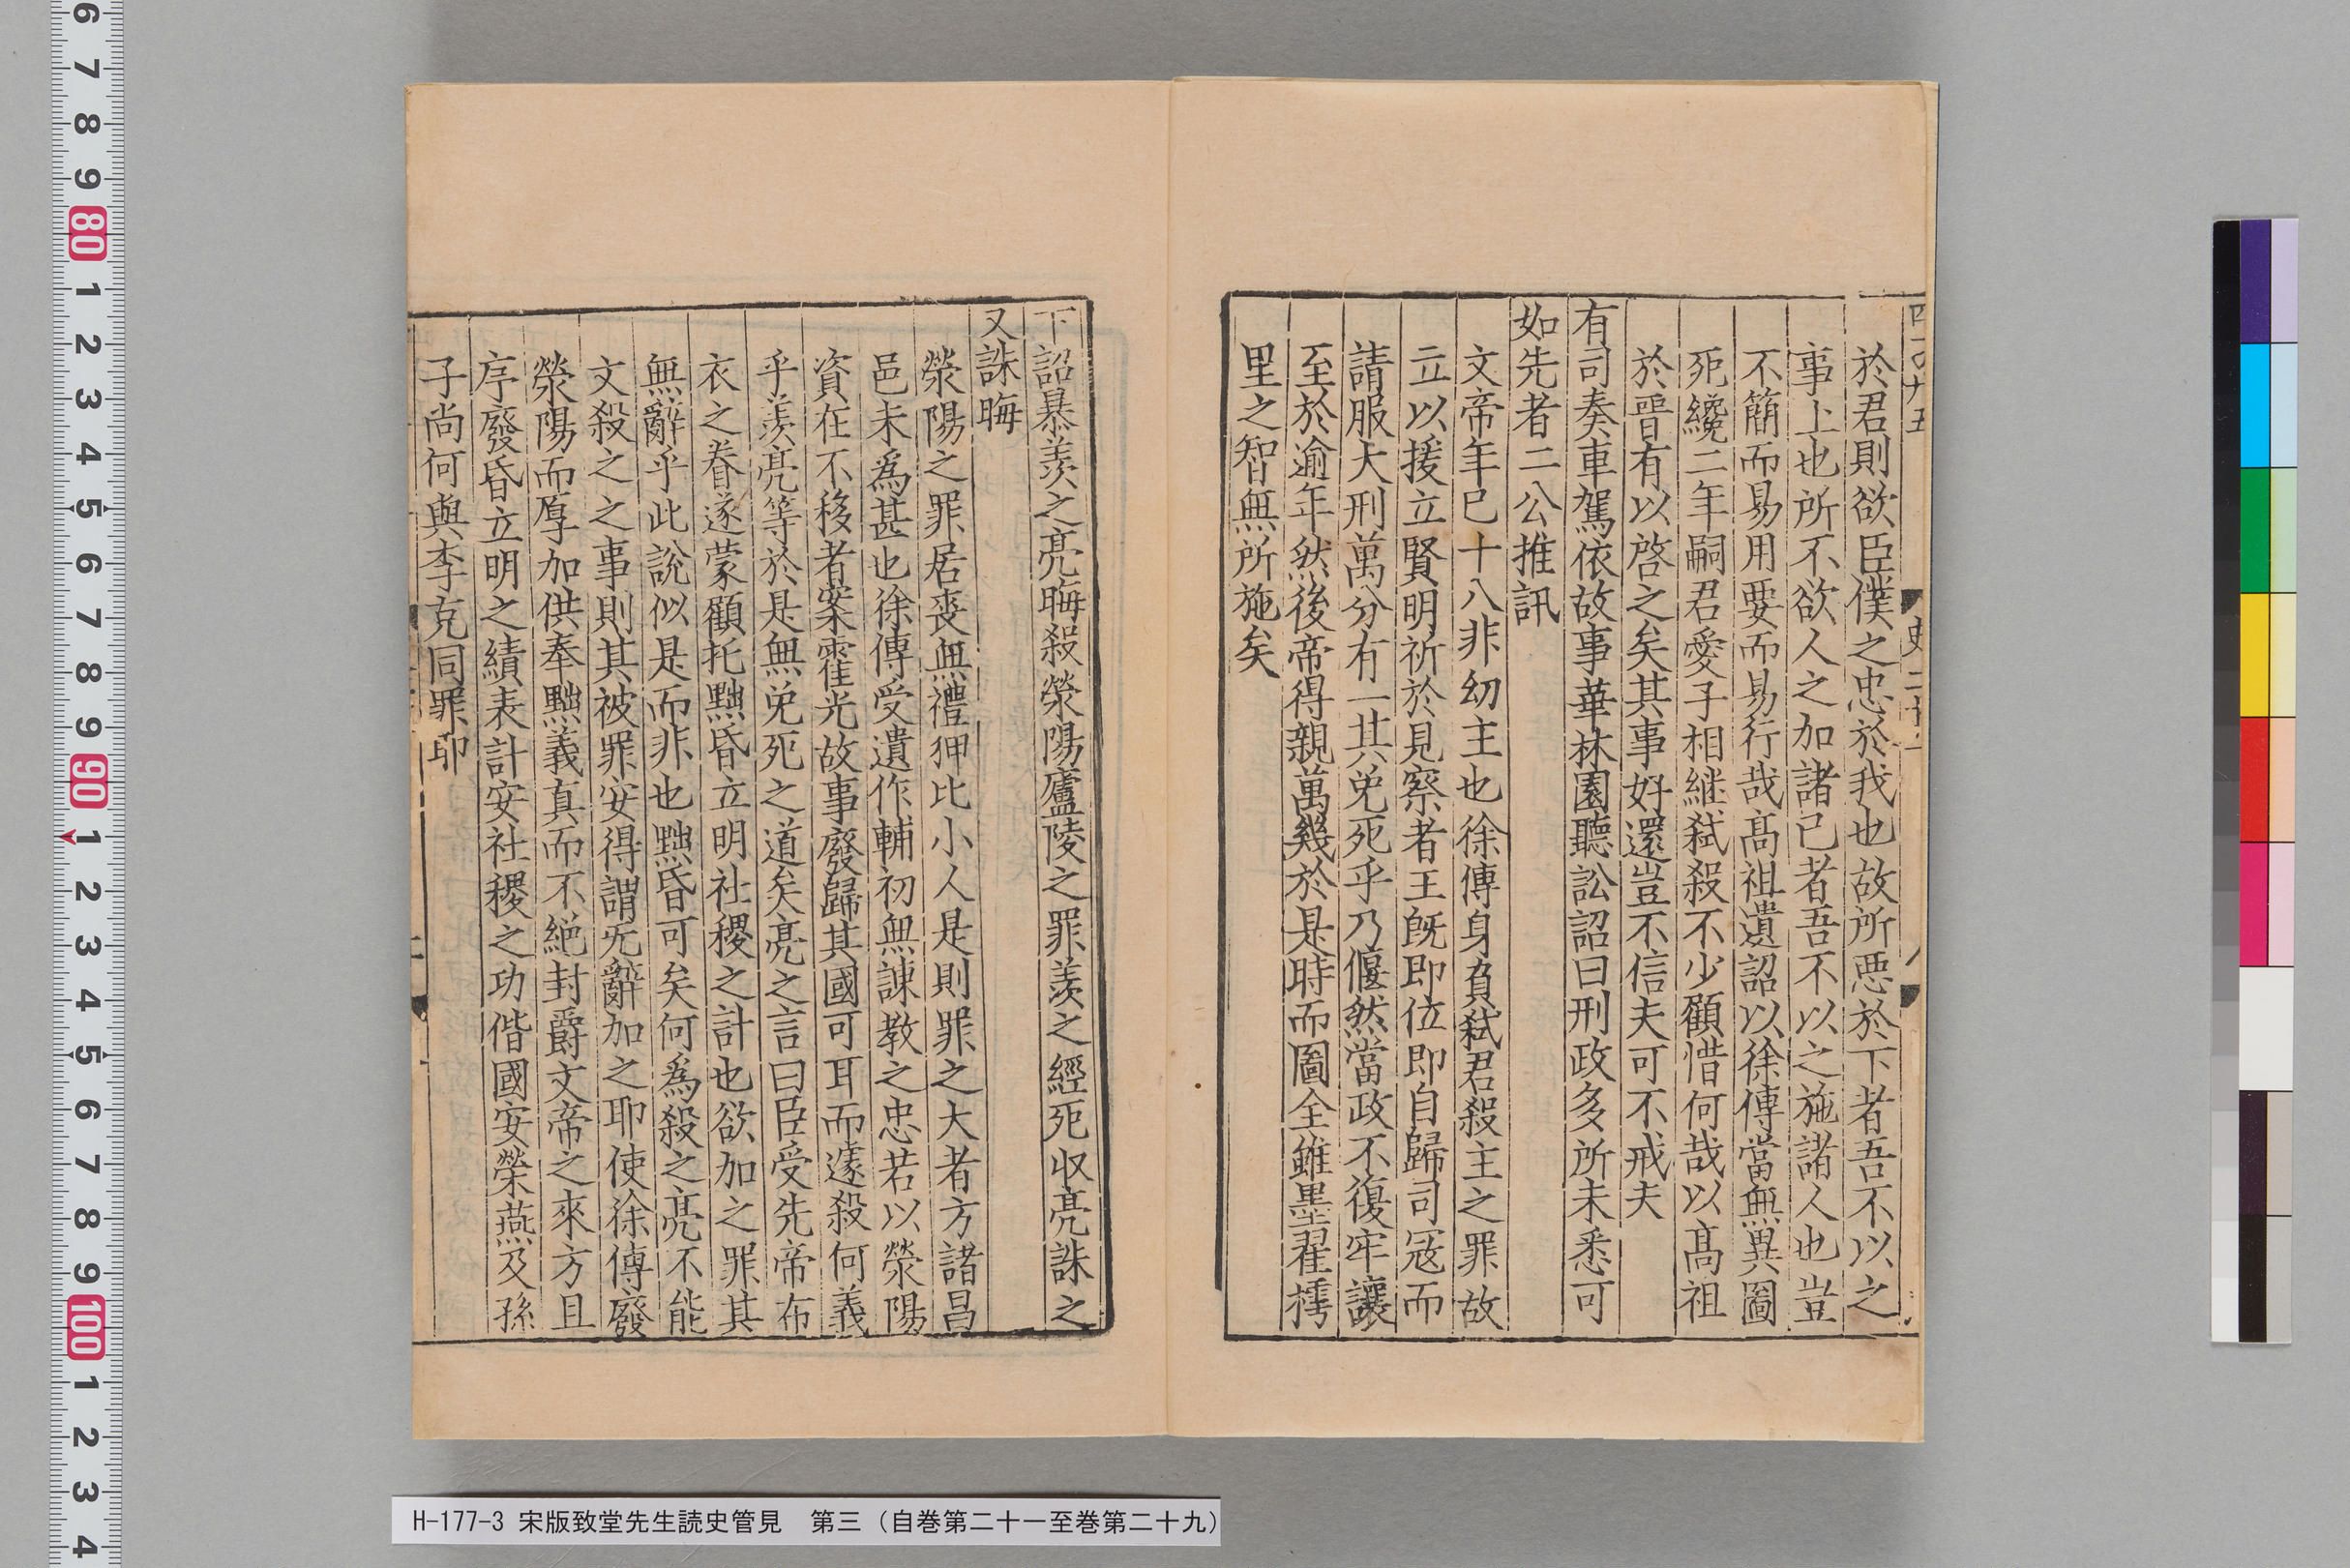 於君則欲臣僕之忠於我也故所惡於下者吾不以之
事上也所不欲人之加諸己者吾不以之施諸人也豈
不簡而易用要而易行哉髙祖遺詔以徐傅當無異圖
死纔二年嗣君愛子相継弑殺不少顧惜何哉以髙祖
於晉有以啓之矣其事好還豈不信夫可不戒夫
有司奏車駕依故事華林園聽訟詔曰刑政多所未悉可
如先者二公推訊
文帝年巳十八非幼主也徐傅身負弑君殺主之罪故
立以援立賢明祈於見察者王旣即位即自歸司寇而
請服大刑萬分有一其免死乎乃偃然當政不復牢讓
至於逾年然後帝得親萬幾於是時而圖全雖墨翟樗
里之智無所施矣
下詔暴羨之亮晦殺滎陽廬陵之罪羨之經死収亮誅之
又誅晦
滎陽之罪居喪無禮狎比小人是則罪之大者方諸昌
邑未為甚也徐傅受遺作輔初無諫教之忠若以滎陽
資在不移者案霍光故事廢歸其國可耳而遽殺何義
乎羨亮等於是無免死之道矣亮之言曰臣受先帝布
衣之眷遂蒙顧托黜昏立明社稷之計也欲加之罪其
無辭乎此說似是而非也黜昏可矣何為殺之亮不能
文殺之之事則其被罪安得謂无辭加之耶使徐傅廢
滎陽而厚加供奉黜義真而不絶封爵文帝之來方且
序廢昏立明之績表計安社稷之功偕國安榮燕及孫
子尚何與李克同罪耶
H-177-3 宋版致堂先生読史管見　第三（自巻第二十一至巻第二十九）
6 7 8 9 80 1 2 3 4 5 6 7 8 9 90 1 2 3 4 5 6 7 8 9 100 1 2 3 4